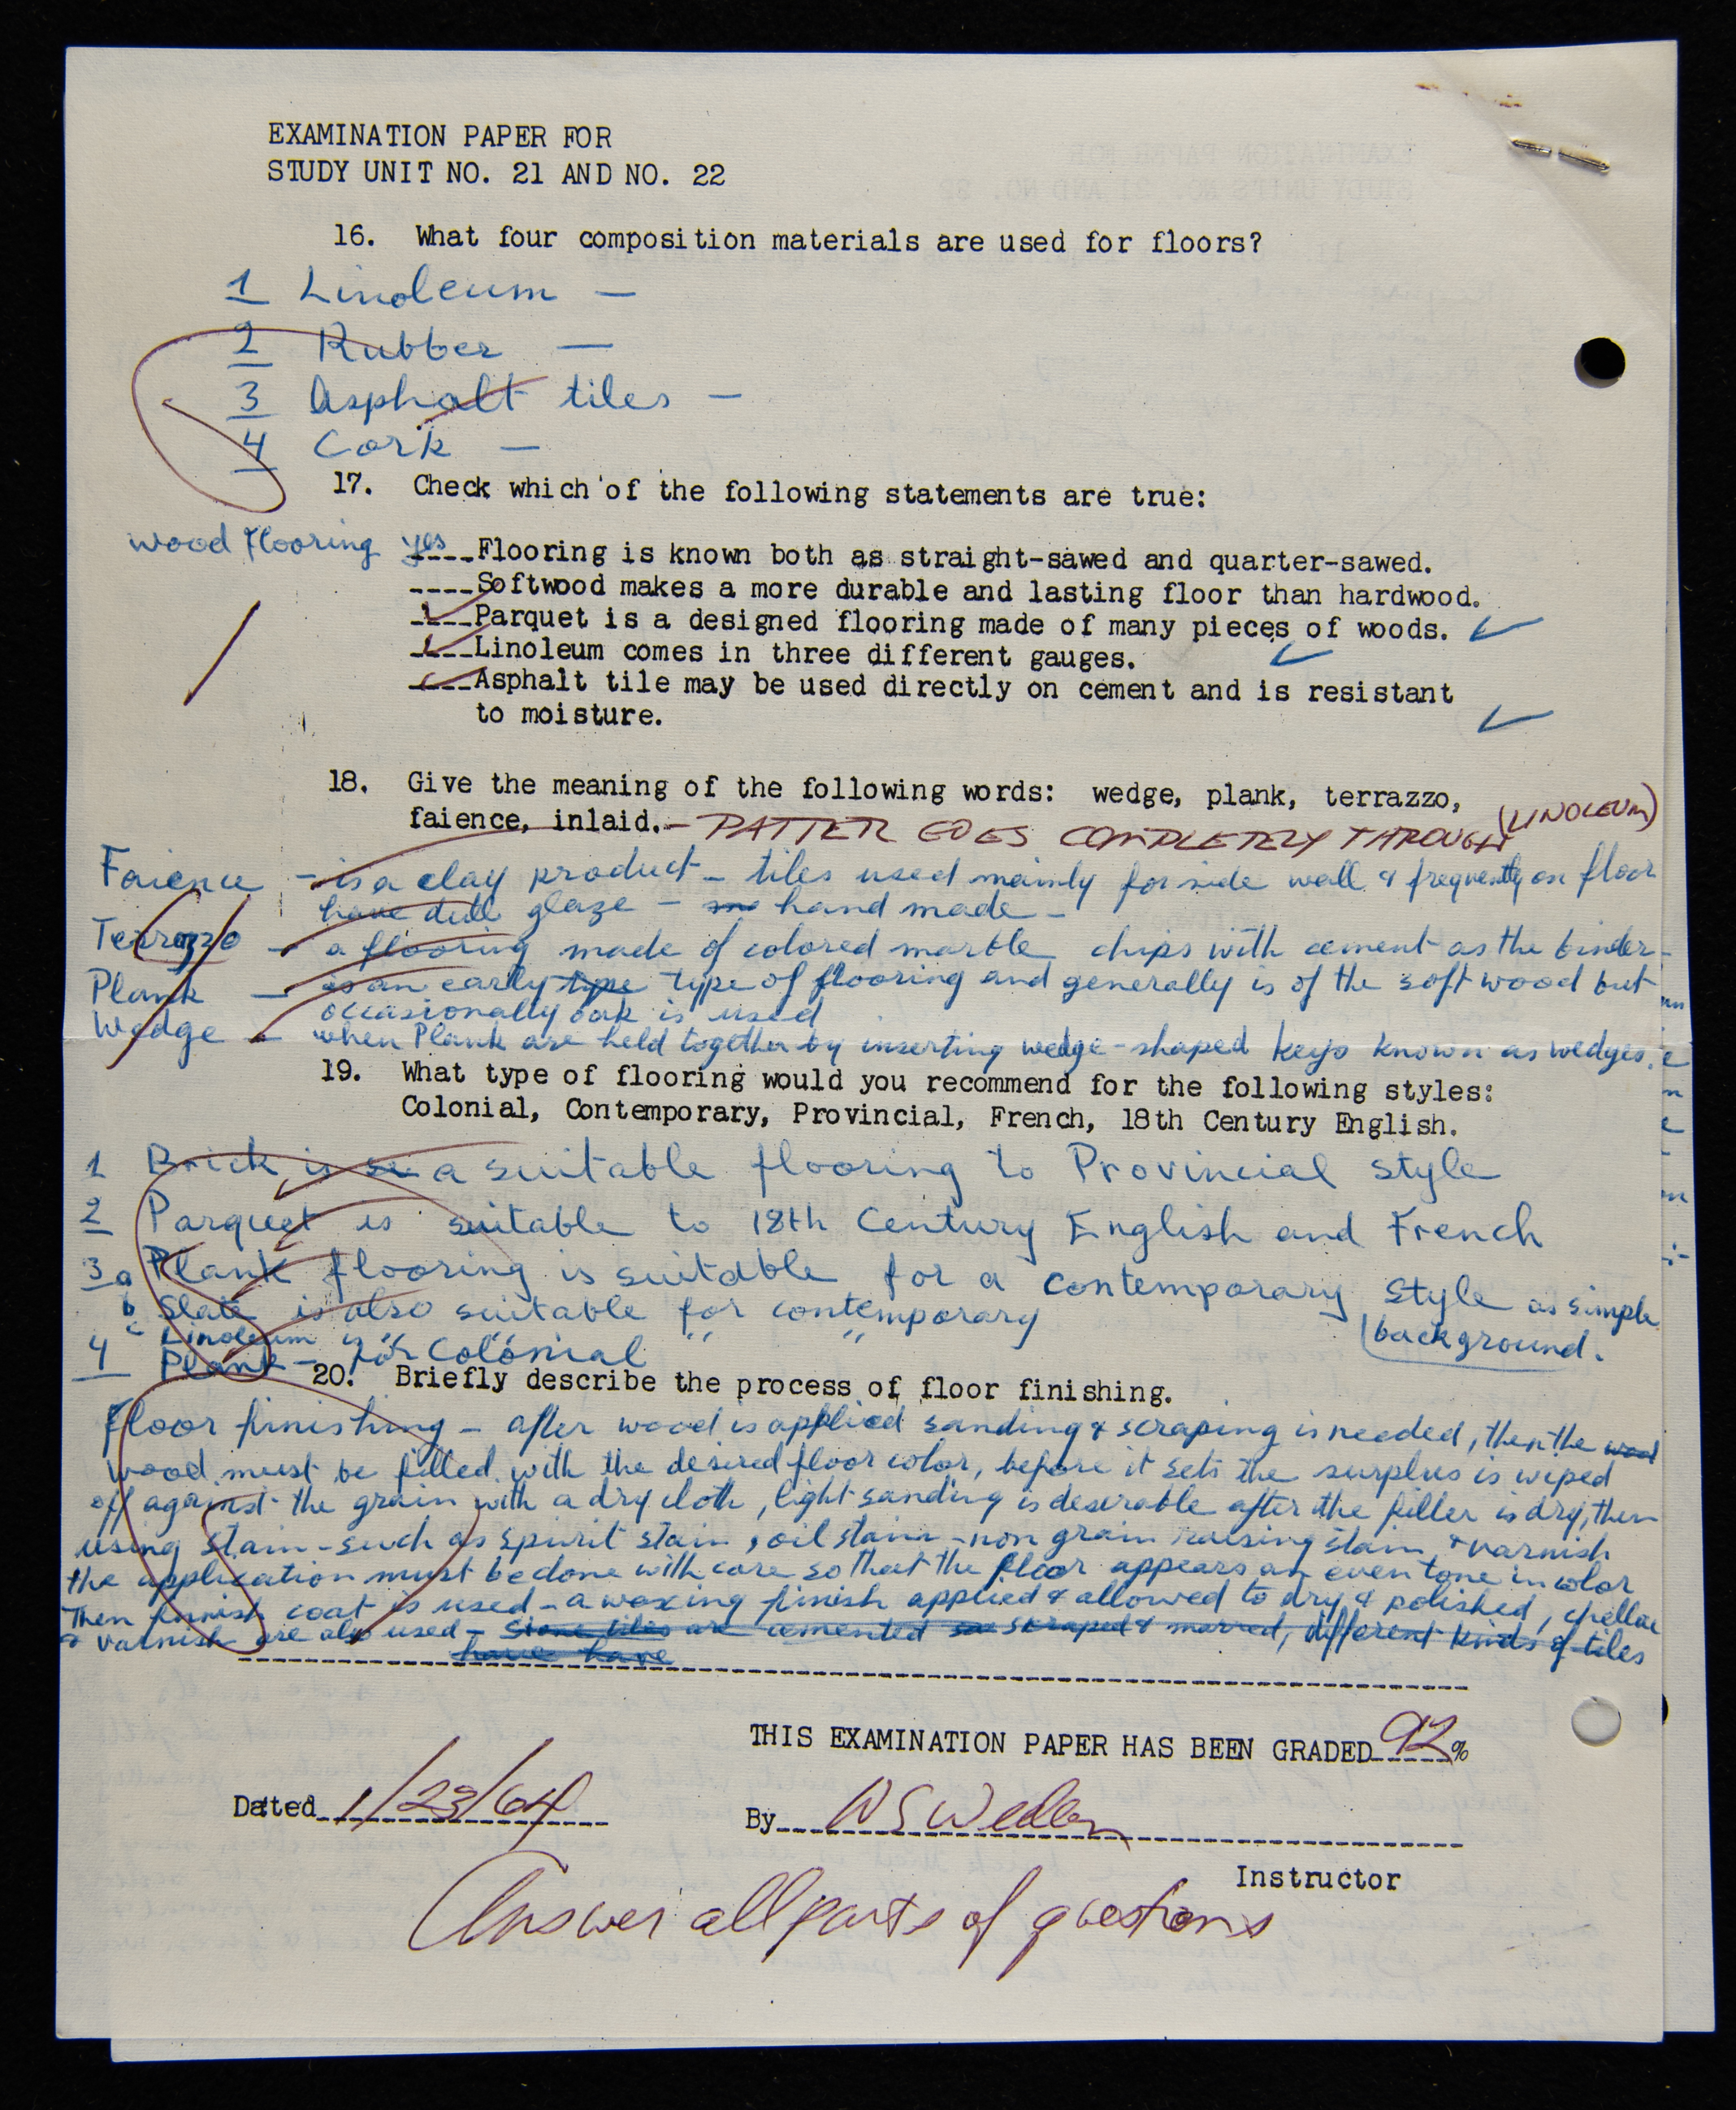 EXAMINATION PAPER FOR
STUDY UNIT NO. 21 AND NO. 22
16. What four composition materials are used for floors?
1 Linoleum —
2 Rubber —
3 Asphalt tiles —
4 Cork —
17. Check which of the following statements are true:
wood flooring yes Flooring is known both as straight-sawed and quarter-sawed.
----Softwood makes a more durable and lasting floor than hardwood.
----Parquet is a designed flooring made of many pieces of woods. ✓
----Linoleum comes in three different gauges. ✓
----Asphalt tile may be used directly on cement and is resistant
to moisture. ✓
18. Give the meaning of the following words: wedge, plank, terrazzo,
faience, inlaid. - PATTER GOES COMPLETELY THROUGH (LINOLEUM)
Faience - is a clay product - tiles used mainly for side wall & frequently on floor
have dull glaze - hand made -
Terrazzo - a flooring made of colored marble chips with cement as the binder -
Plank - is an early type type of flooring and generally is of the soft wood but
occasionally oak is used
Wedge - when Plank are held together by inserting wedge-shaped keys known as wedges.
19. What type of flooring would you recommend for the following styles:
Colonial, Contemporary, Provincial, French, 18th Century English.
1 Brick is a suitable flooring to Provincial style
2 Parquet is suitable to 18th Century English and French
3 a Plank flooring is suitable for a contemporary style as simple
background.
b Slate is also suitable for contemporary
c Linoleum is " " " "
4 Plank - for Colonial
20. Briefly describe the process of floor finishing.
Floor finishing - after wood is applied sanding & scraping is needed, then the wood
wood must be filled with the desired floor color, before it sets the surplus is wiped
off against the grain with a dry cloth, light sanding is desirable after the filler is dry, then
using stain - such as spirit stain, oil stain - non grain raising stain & varnish
the application must be done with care so that the floor appears an even tone in color
Then finish coat is used - a waxing finish applied & allowed to dry & polished, shellac
& varnish are also used - Stone tiles are cemented scraped & marred, different kinds of tiles
have have
THIS EXAMINATION PAPER HAS BEEN GRADED 92%
Dated 1/23/64
By W S
Instructor
Answer all parts of questions